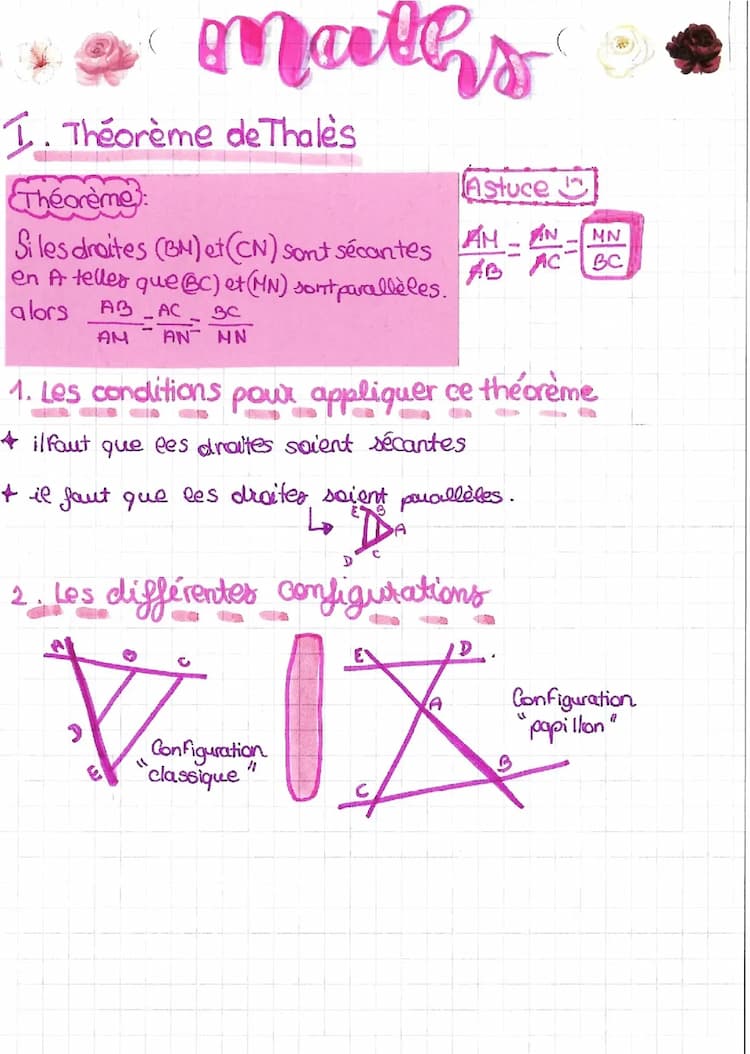 maths
I. Théorème de Thalès
Théorème:
Si les droites (BM) et (CN) sont sécantes
en A telles que (BC) et (MN) sont parallèles.
alors AB/AM = AC/AN = BC/MN
Astuce
AM/AB = AN/AC = MN/BC
1. Les conditions pour appliquer ce théorème
il faut que les droites soient sécantes
il faut que les droites soient parallèles.
E B
A
D C
2. Les différentes configurations
A B C
D
E
Configuration
"classique"
E D
A
B
C
Configuration
"papillon"